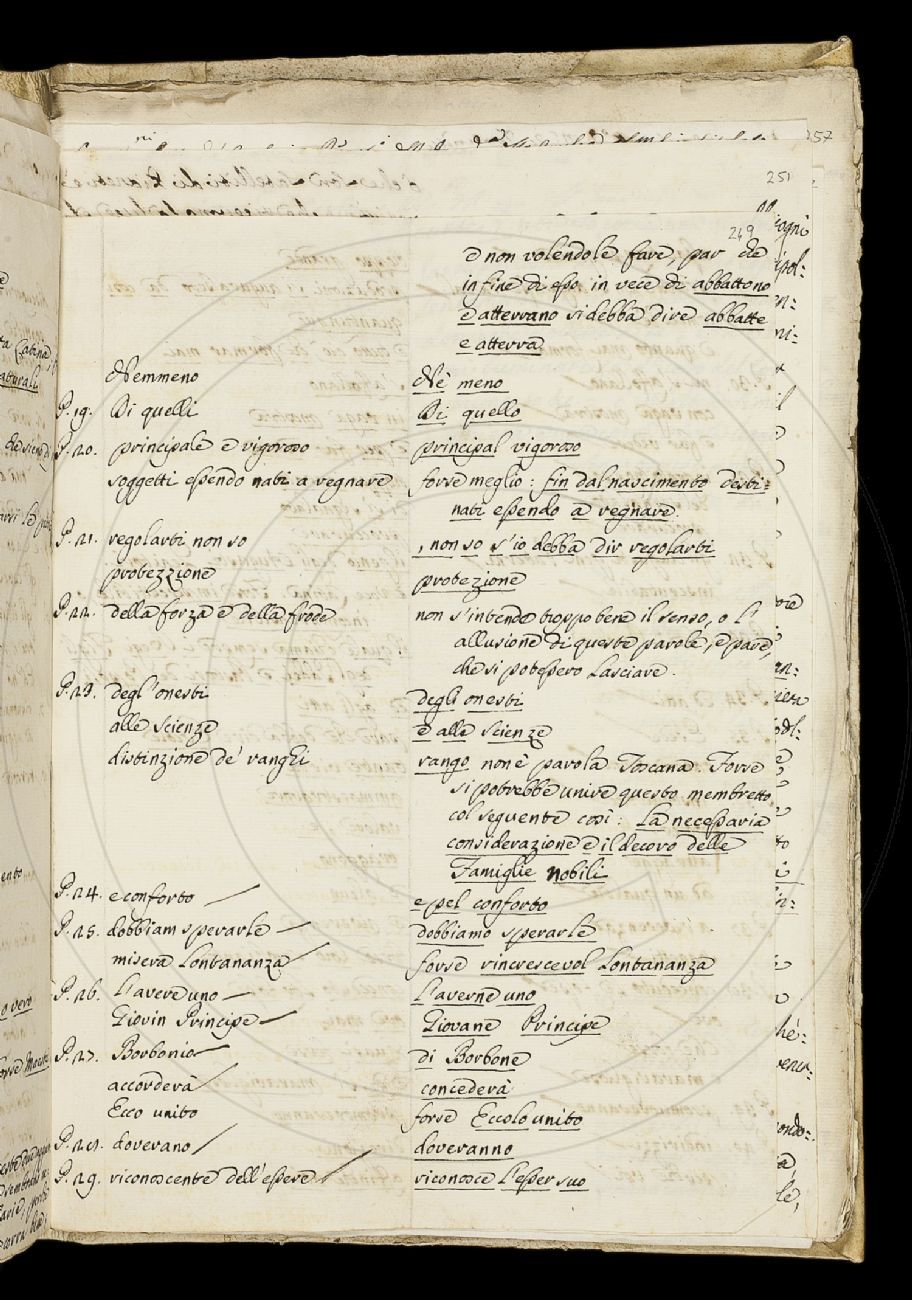 257
251
249
e non volendole fare, par che
in fine di esso in vece di abbattono
e atterrano si debba dire abbatte
e atterra
Nemmeno Nè meno
P. 19. Di quelli Di quello
P. 20. principale e vigoroso principal vigoroso
soggetti essendo nati a regnare forse meglio: fin dal nascimento desti=
nati essendo a regnare.
P. 21. regolarti non so , non so s'io debba dir regolarti
protezzione protezione
P. 22. della forza e della frode non s'intende troppo bene il senso, o l'
allusione di queste parole, e pare,
che si potessero lasciare.
P. 23. degl'onesti degli onesti
alle scienze e alle scienze
distinzione de' ranghi rango non è parola Toscana. Forse
si potrebbe unire questo membretto
col seguente così: La necessaria
considerazione e il decoro delle
Famiglie nobili
P. 24. e conforto e pel conforto
P. 25. dobbiam sperarle dobbiamo sperarle
misera lontananza forse rincrescevol lontananza
P. 26. l'avere uno l'averne uno
Giovin Principe Giovane Principe
P. 27. Borbonio di Borbone
accorderà concederà
Ecco unito forse Eccolo unito
P. 28. doverano doveranno
P. 29. riconoscente dell'essere riconosce l'esser suo